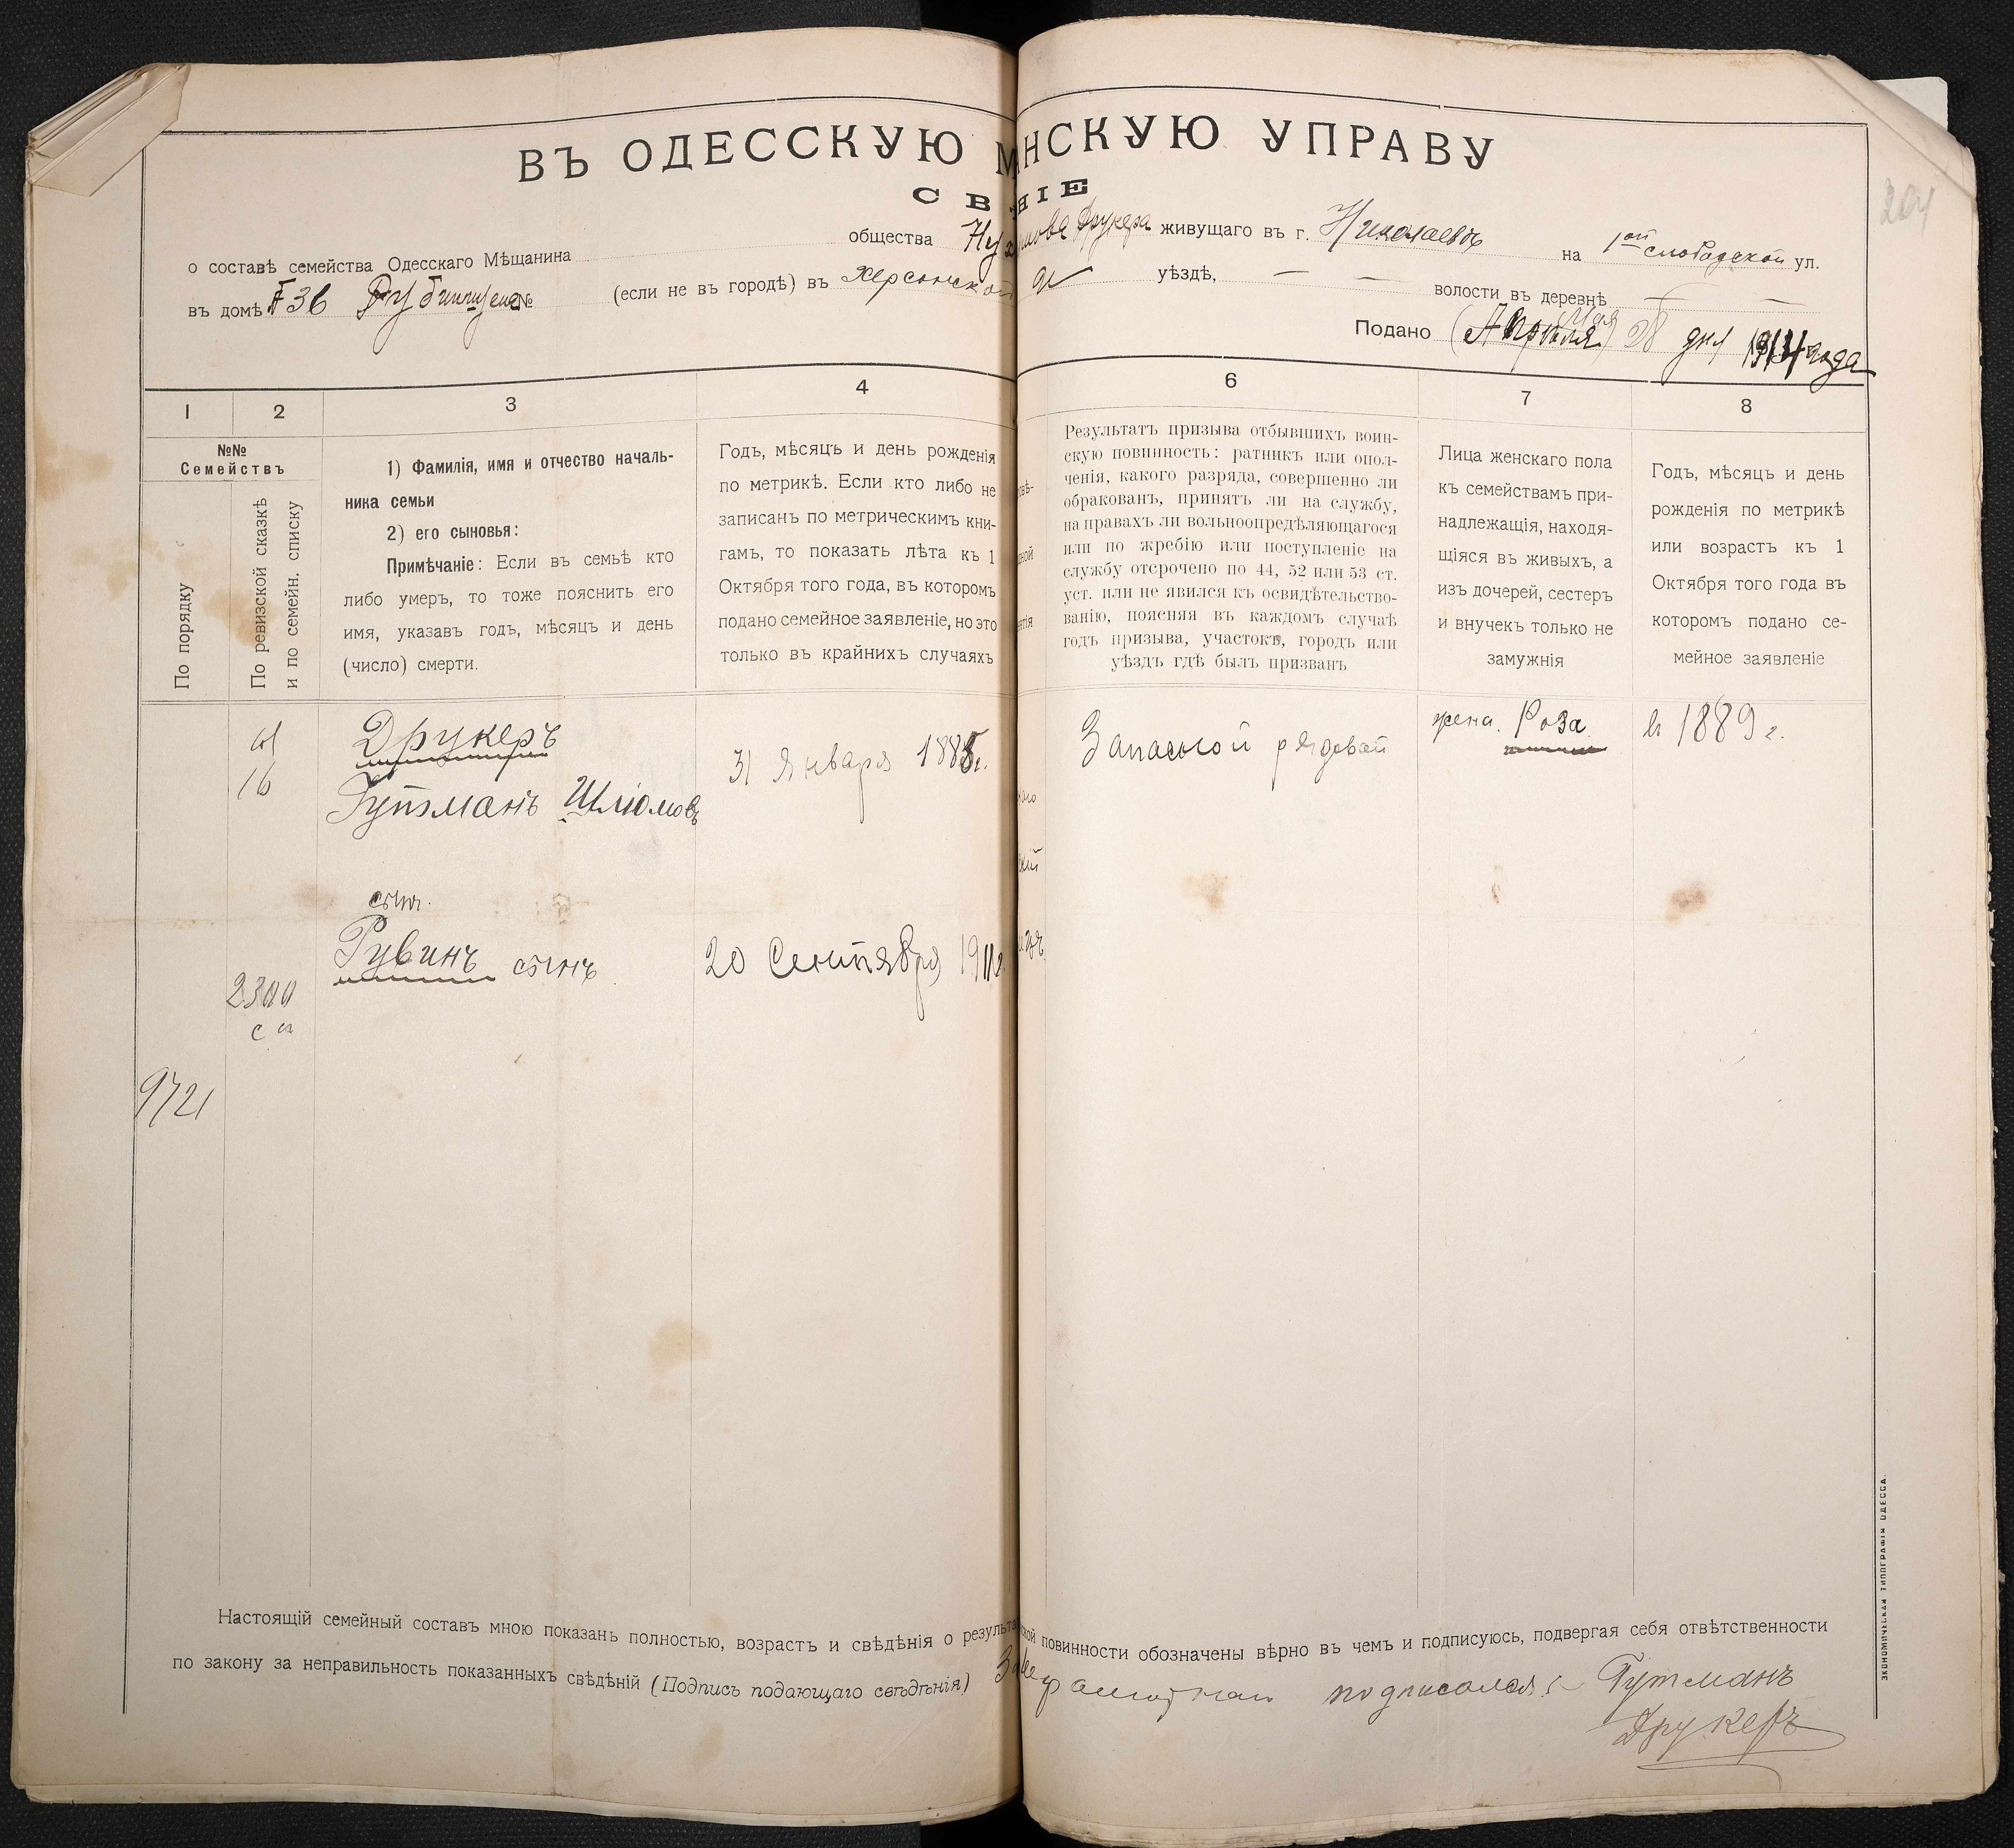 ВЪ ОДЕССКУЮ М НСКУЮ УПРАВУ
СВ НІЕ
204
о составѣ семейства Одесскаго Мѣщанина общества Друкера живущаго въ г. Николаевѣ на 1ой слободской ул.
въ домѣ № 36 (если не въ городѣ) въ Херсонской уѣздѣ, — — волости въ деревнѣ — —
Подано (Апрѣля) Мая 28 дня 1914 года
1 2 3 4 6 7 8
№№
Семействъ
По порядку
По ревизской сказкѣ
и по семейн. списку
1) Фамилія, имя и отчество началь-
ника семьи
2) его сыновья:
Примѣчаніе: Если въ семьѣ кто
либо умеръ, то тоже пояснить его
имя, указавъ годъ, мѣсяцъ и день
(число) смерти.
Годъ, мѣсяцъ и день рожденія
по метрикѣ. Если кто либо не
записанъ по метрическимъ кни-
гамъ, то показать лѣта къ 1
Октября того года, въ которомъ
подано семейное заявленіе, но это
только въ крайнихъ случаяхъ
Результатъ призыва отбывшихъ воин-
скую повинность: ратникъ или опол-
ченія, какого разряда, совершенно ли
обракованъ, принятъ ли на службу,
на правахъ ли вольноопредѣляющагося
или по жребію или поступленіе на
службу отсрочено по 44, 52 или 53 ст.
уст. или не явился къ освидѣтельство-
ванію, поясняя въ каждомъ случаѣ
годъ призыва, участокъ, городъ или
уѣздъ гдѣ былъ призванъ
Лица женскаго пола
къ семействамъ при-
надлежащія, находя-
щіяся въ живыхъ, а
изъ дочерей, сестеръ
и внучекъ только не
замужнія
Годъ, мѣсяцъ и день
рожденія по метрикѣ
или возрастъ къ 1
Октября того года въ
которомъ подано се-
мейное заявленіе
Друкеръ
16 Гутманъ Шліомовъ
31 Января 1885 г.
Запасной рядовой
жена. Роза
въ 1889 г.
сынъ
Рувинъ сынъ
20 Сентября 1911 г.
2300
9721
Настоящій семейный составъ мною показанъ полностью, возрастъ и свѣдѣнія о результа ской повинности обозначены вѣрно въ чемъ и подписуюсь, подвергая себя отвѣтственности
по закону за неправильность показанныхъ свѣдѣній (Подпись подающаго свѣдѣнія) подписался: Гутманъ
Друкеръ
ЭКОНОМИЧЕСКАЯ ТИПОГРАФІЯ ОДЕССА.